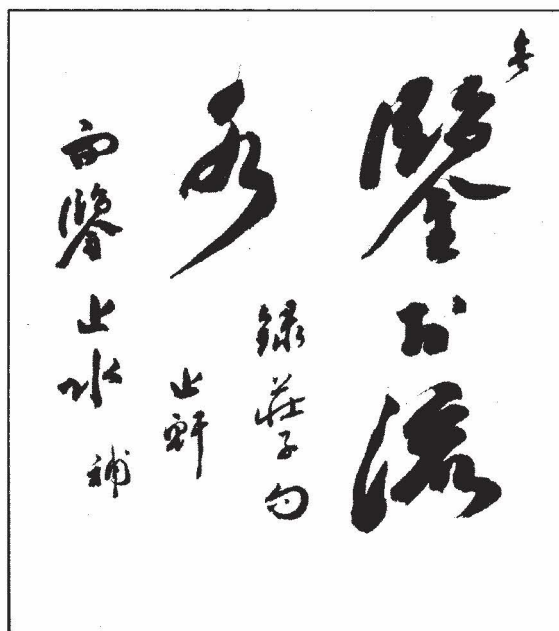 鑒於流
水
錄莊子句
止軒
而鑒止水 補